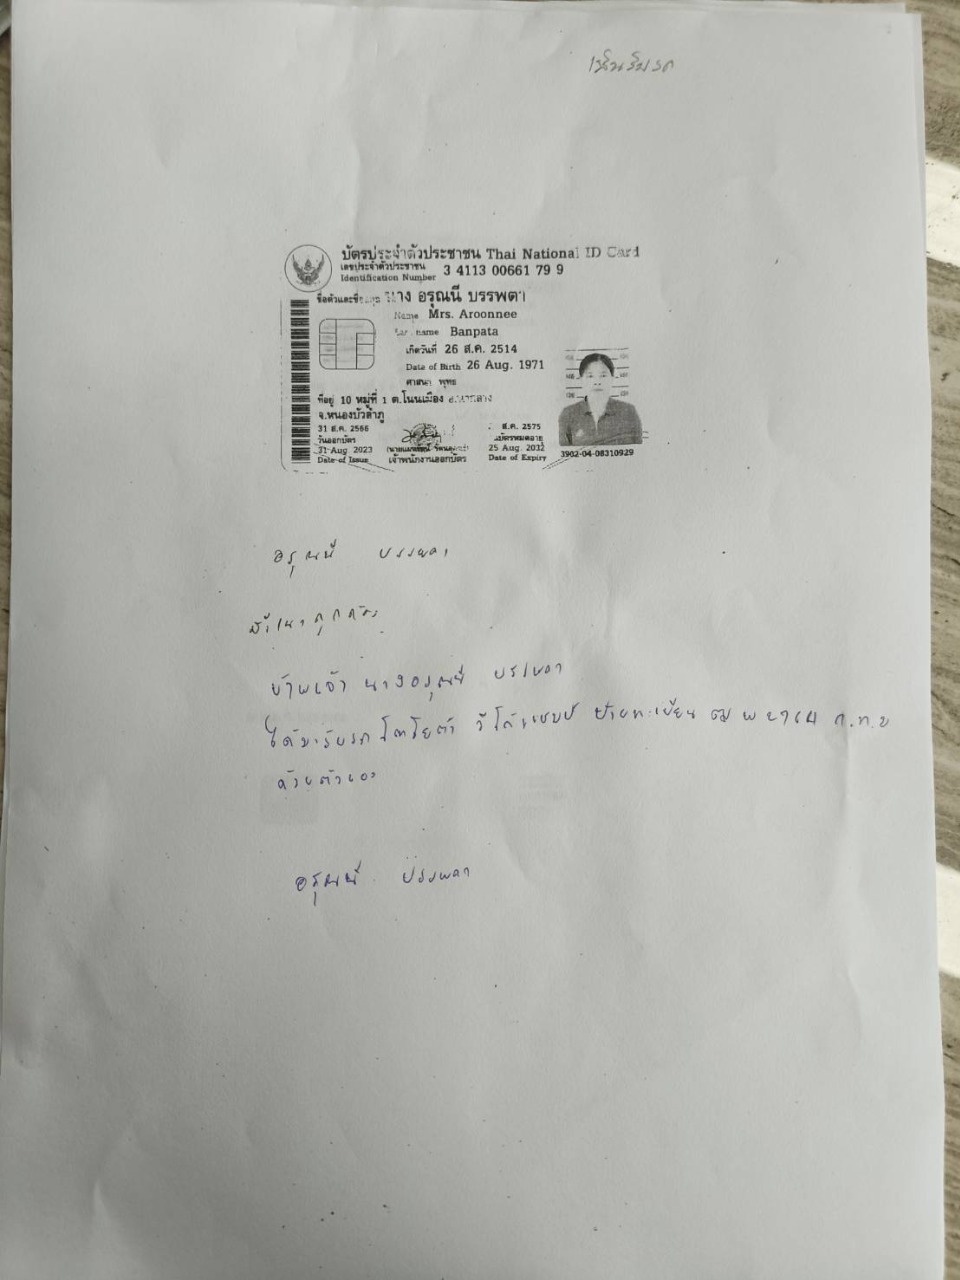 เซ็นรับรถ
บัตรประจำตัวประชาชน Thai National ID Card
เลขประจำตัวประชาชน 3 4113 00661 79 9
Identification Number
ชื่อตัวและชื่อสกุล นาง อรุณนี บรรพตา
Name Mrs. Aroonnee
name Banpata
เกิดวันที่ 26 ส.ค. 2514
Date of Birth 26 Aug. 1971
ศาสนา พุทธ
ที่อยู่ 10 หมู่ที่ 1 ต.โนนเมือง อ.นากลาง
จ.หนองบัวลำภู
31 ส.ค. 2566
วันออกบัตร
31 Aug. 2023
Date of Issue
เจ้าพนักงานออกบัตร
ส.ค. 2575
บัตรหมดอายุ
25 Aug. 2032
Date of Expiry
3902-04-08310929
อรุณนี บรรพตา
สำเนาถูกต้อง
ข้าพเจ้า นางอรุณนี บรรพตา
ได้มารับรถ โตโยต้า วีโก้แชมป์ ป้ายทะเบียน ก.ท.ม
ด้วยตัวเอง
อรุณนี บรรพตา